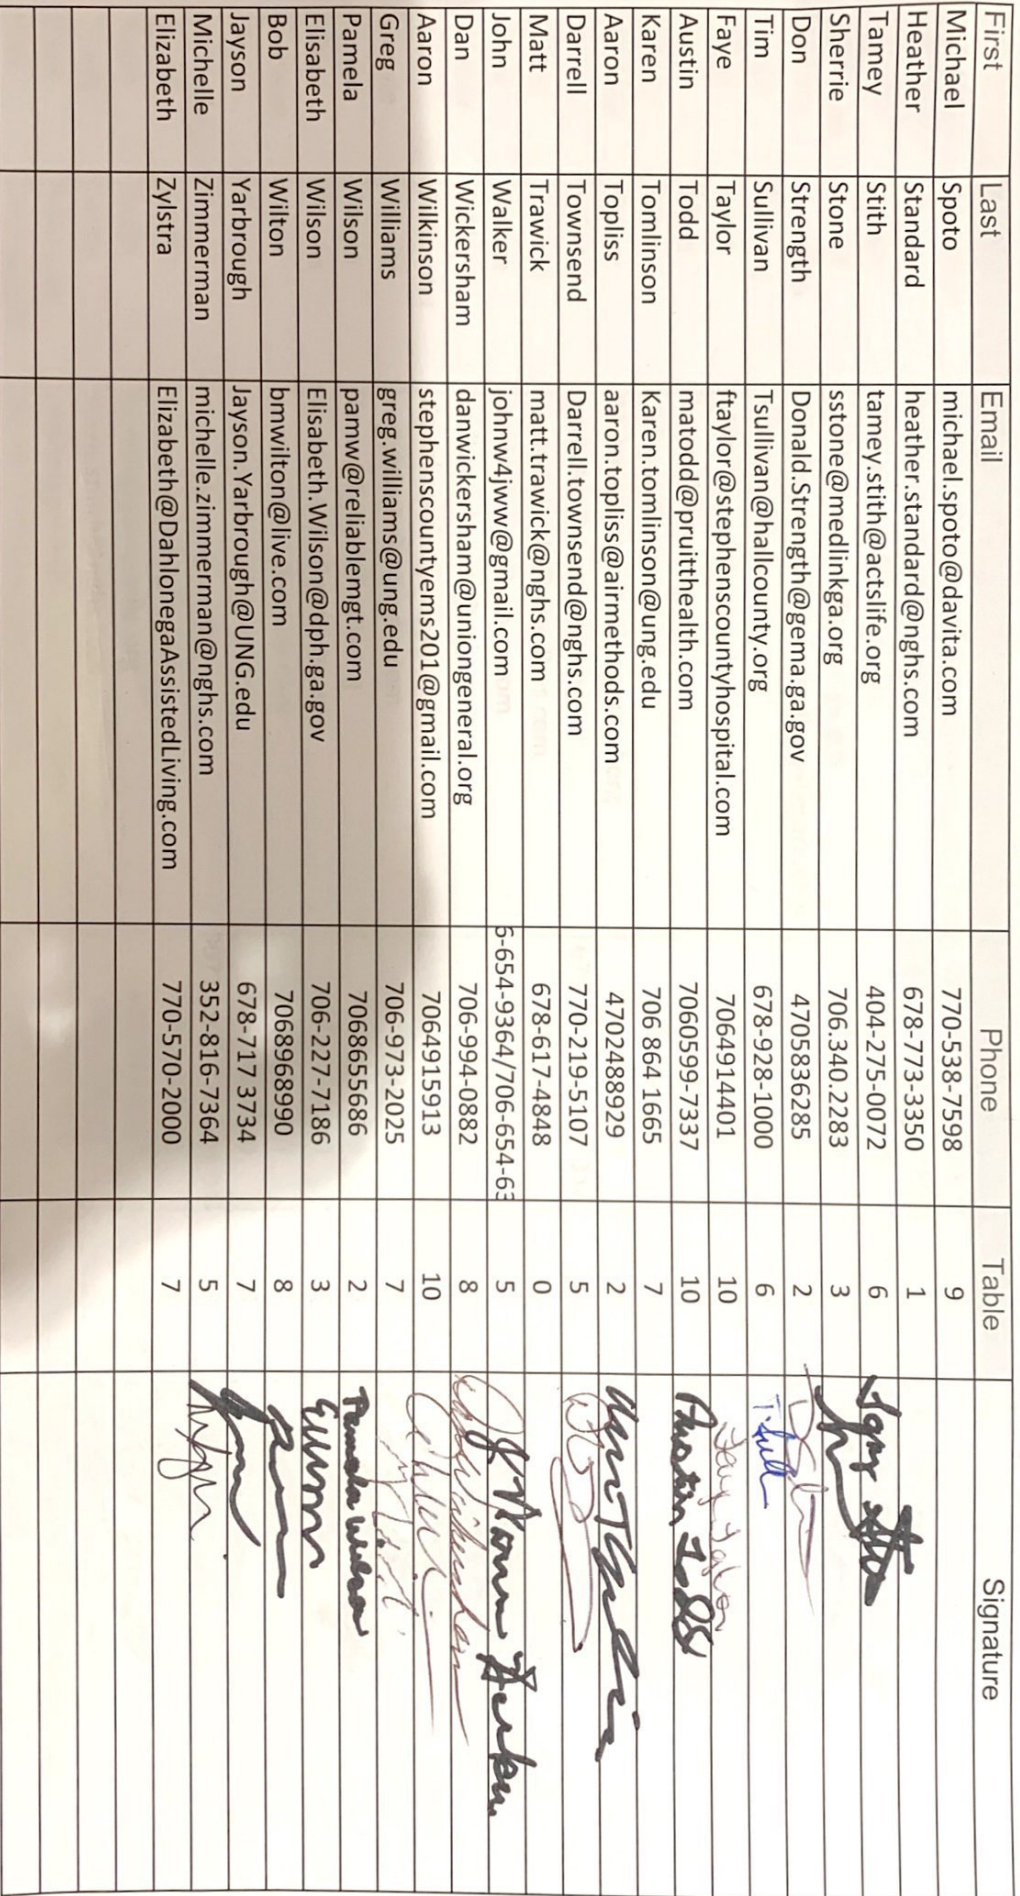 First Last Email Phone Table Signature
Michael Spoto michael.spoto@davita.com 770-538-7598 9
Heather Standard heather.standard@nghs.com 678-773-3350 1
Tamey Stith tamey.stith@actslife.org 404-275-0072 6
Sherrie Stone sstone@medlinkga.org 706.340.2283 3
Don Strength Donald.Strength@gema.ga.gov 4705836285 2
Tim Sullivan Tsullivan@hallcounty.org 678-928-1000 6
Faye Taylor ftaylor@stephenscountyhospital.com 7064914401 10 Faye Taylor
Austin Todd matodd@pruitthealth.com 7060599-7337 10 Austin Todd
Karen Tomlinson Karen.tomlinson@ung.edu 706 864 1665 7
Aaron Topliss aaron.topliss@airmethods.com 4702488929 2
Darrell Townsend Darrell.townsend@nghs.com 770-219-5107 5
Matt Trawick matt.trawick@nghs.com 678-617-4848 0
John Walker johnw4jww@gmail.com 6-654-9364/706-654-63 5
Dan Wickersham danwickersham@uniongeneral.org 706-994-0882 8
Aaron Wilkinson stephenscountyems201@gmail.com 7064915913 10
Greg Williams greg.williams@ung.edu 706-973-2025 7
Pamela Wilson pamw@reliablemgt.com 7068655686 2 Pamela Wilson
Elisabeth Wilson Elisabeth.Wilson@dph.ga.gov 706-227-7186 3
Bob Wilton bmwilton@live.com 7068968990 8
Jayson Yarbrough Jayson.Yarbrough@UNG.edu 678-717 3734 7
Michelle Zimmerman michelle.zimmerman@nghs.com 352-816-7364 5
Elizabeth Zylstra Elizabeth@DahlonegaAssistedLiving.com 770-570-2000 7